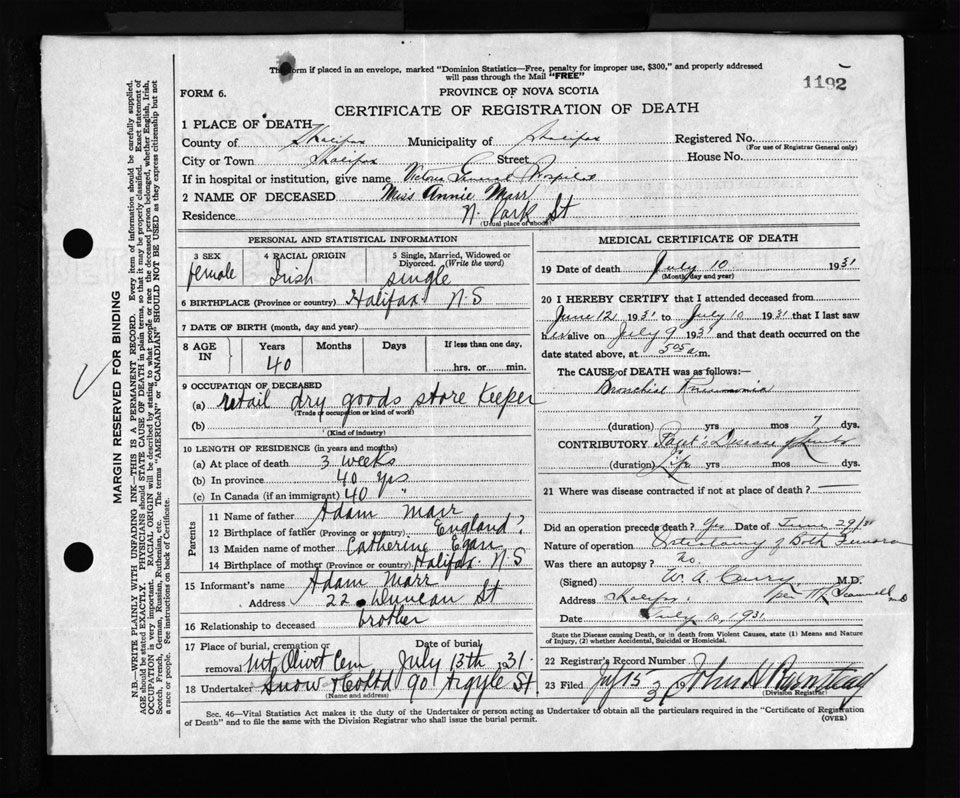 This form if placed in an envelope, marked "Dominion Statistics—Free, penalty for improper use, $300," and properly addressed
will pass through the Mail "FREE"
1192
FORM 6.
PROVINCE OF NOVA SCOTIA
CERTIFICATE OF REGISTRATION OF DEATH
1 PLACE OF DEATH
County of Halifax Municipality of Halifax Registered No.
(For use of Registrar General only)
City or Town Halifax Street House No.
If in hospital or institution, give name Victoria General Hospital
2 NAME OF DECEASED Miss Annie Marr
Residence N. Park St
(Usual place of abode)
PERSONAL AND STATISTICAL INFORMATION
3 SEX 4 RACIAL ORIGIN 5 Single, Married, Widowed or Divorced. (Write the word)
female Irish single
6 BIRTHPLACE (Province or country) Halifax N.S
7 DATE OF BIRTH (month, day and year)
8 AGE IN Years Months Days If less than one day,
40 hrs. or min.
9 OCCUPATION OF DECEASED
(a) retail dry goods store keeper
(Trade or occupation or kind of work)
(b)
(Kind of industry)
10 LENGTH OF RESIDENCE (in years and months)
(a) At place of death 3 weeks
(b) In province 40 yrs
(c) In Canada (if an immigrant) 40 "
Parents
11 Name of father Adam Marr
12 Birthplace of father (Province or country) England?
13 Maiden name of mother Catherine Egan
14 Birthplace of mother (Province or country) Halifax. N.S
15 Informant's name Adam Marr
Address 22 Duncan St
16 Relationship to deceased brother
17 Place of burial, cremation or removal Date of burial
Mt Olivet Cem July 13th 31
18 Undertaker Snow & Co Ltd 90 Argyle St
(Name and address)
MEDICAL CERTIFICATE OF DEATH
19 Date of death July 10 1931
(Month, day and year)
20 I HEREBY CERTIFY that I attended deceased from
June 12 1931 to July 10 1931 that I last saw
her alive on July 9 1931 and that death occurred on the
date stated above, at 5 05 a.m.
The CAUSE of DEATH was as follows:—
Bronchial Pneumonia
(duration) yrs mos 7 dys.
CONTRIBUTORY Paget's Disease of
(duration) Life yrs mos dys.
21 Where was disease contracted if not at place of death? —
Did an operation precede death? Yes Date of June 29/31
Nature of operation Osteotomy of Both Femora
Was there an autopsy? No.
(Signed) W. A. Curry. M.D.
Address Halifax. per
Date July 10, 1931
State the Disease causing Death, or in death from Violent Causes, state (1) Means and Nature
of Injury, (2) whether Accidental, Suicidal or Homicidal.
22 Registrar's Record Number
23 Filed July 15 31 John H
(Division Registrar)
Sec. 46—Vital Statistics Act makes it the duty of the Undertaker or person acting as Undertaker to obtain all the particulars required in the "Certificate of Registration
of Death" and to file the same with the Division Registrar who shall issue the burial permit.
(OVER)
MARGIN RESERVED FOR BINDING
N.B.—WRITE PLAINLY WITH UNFADING INK—THIS IS A PERMANENT RECORD. Every item of information should be carefully supplied.
AGE should be stated EXACTLY. PHYSICIANS should STATE CAUSE OF DEATH in plain terms, so that it may be properly classified. Exact statement of
OCCUPATION is very important. RACIAL ORIGIN will be described by stating to what people or race the deceased person belonged, whether English, Irish,
Scotch, French, German, Russian, Ruthenian, etc. The terms "AMERICAN" or "CANADIAN" SHOULD NOT BE USED as they express citizenship but not
a race or people. See instructions on back of Certificate.